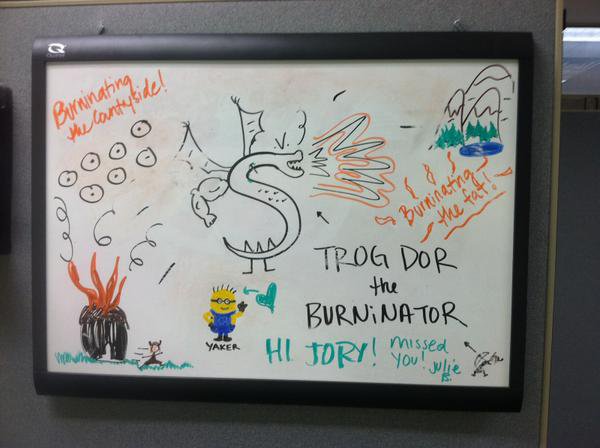 Burninating
the Countyside!
Burninating
the fat!
TROGDOR
the
BURNiNATOR
YAKER
HI JORY!
missed
You!
Julie
B.